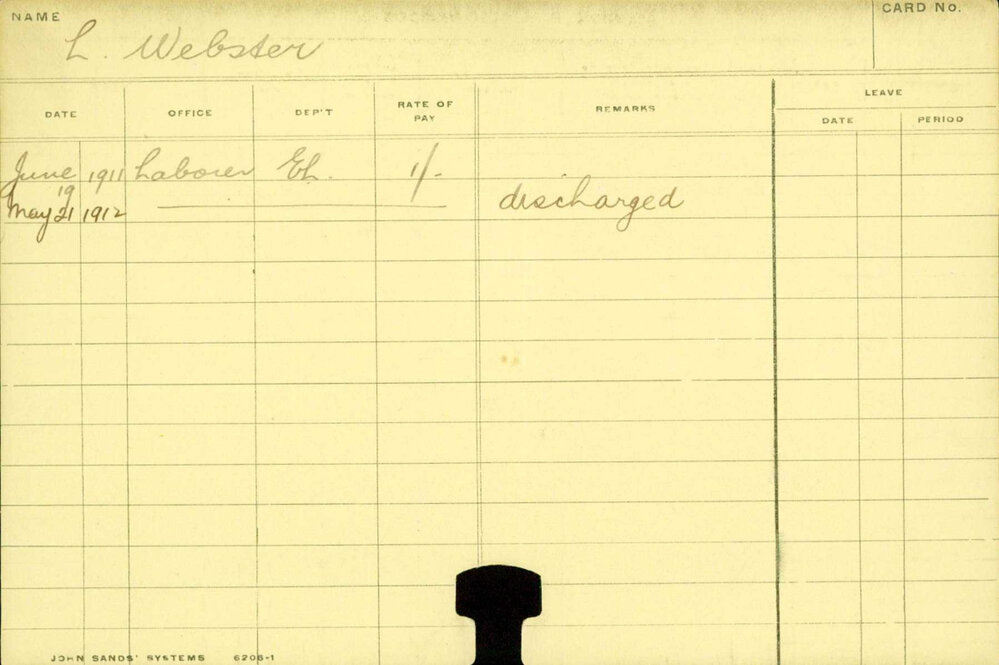 NAME
L. Webster
CARD No.
DATE OFFICE DEP'T RATE OF PAY REMARKS LEAVE
DATE PERIOD
June 1911 Laborer EL. 1/-
19
May 21 1912 discharged
JOHN SANDS' SYSTEMS 6206-1